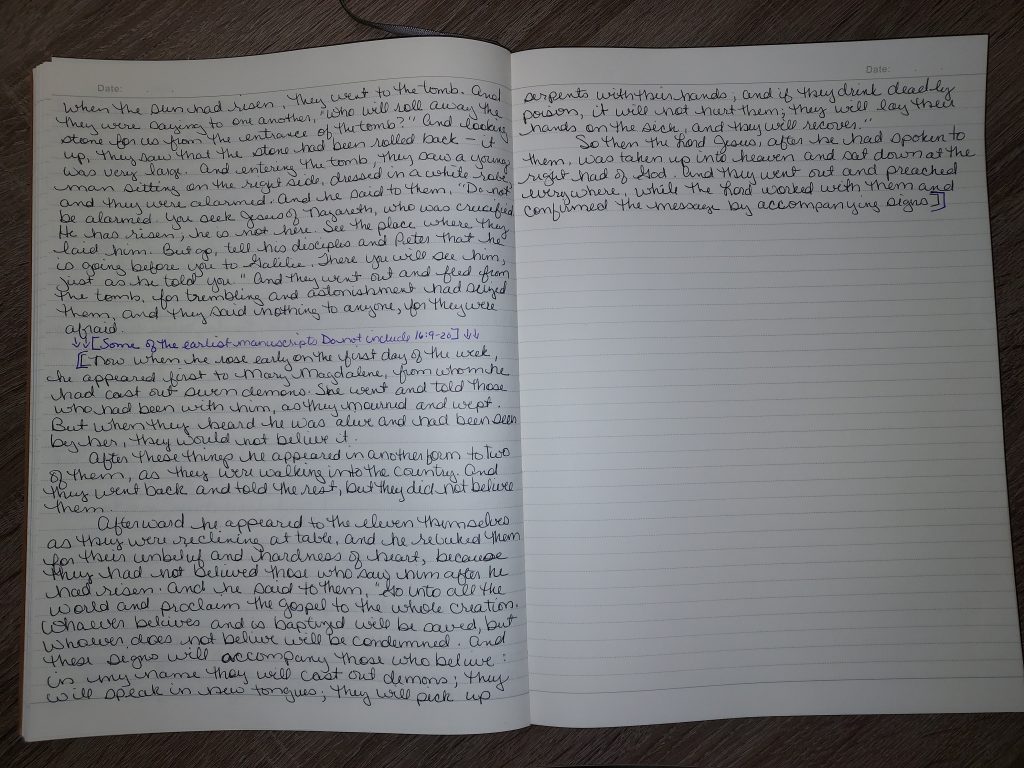 Date:
when the sun had risen, they went to the tomb. And
they were saying to one another, "who will roll away the
stone for us from the entrance of the tomb?" And looking
up, they saw that the stone had been rolled back – it
was very large. And entering the tomb, they saw a young
man sitting on the right side, dressed in a white robe,
and they were alarmed. And he said to them, "Do not
be alarmed. You seek Jesus of Nazareth, who was crucified.
He has risen; he is not here. See the place where they
laid him. But go, tell his disciples and Peter that he
is going before you to Galilee. There you will see him,
just as he told you." And they went out and fled from
the tomb, for trembling and astonishment had seized
them, and they said nothing to anyone, for they were
afraid.
↓↓[Some of the earliest manuscripts Do not include 16:9-20]↓↓
[Now when he rose early on the first day of the week,
he appeared first to Mary Magdalene, from whom he
had cast out seven demons. She went and told those
who had been with him, as they mourned and wept.
But when they heard he was alive and had been seen
by her, they would not believe it.
After these things he appeared in another form to two
of them, as they were walking into the country. And
they went back and told the rest, but they did not believe
them.
Afterward he appeared to the eleven themselves
as they were reclining at table, and he rebuked them
for their unbelief and hardness of heart, because
they had not believed those who say him after he
had risen. And he said to them, "Go into all the
world and proclaim the gospel to the whole creation.
Whoever believes and is baptized will be saved, but
whoever does not believe will be condemned. And
these signs will accompany those who believe:
in my name they will cast out demons; they
will speak in new tongues; they will pick up
Date:
serpents with their hands; and if they drink deadly
poison, it will not hurt them; they will lay their
hands on the sick, and they will recover."
So then the Lord Jesus, after he had spoken to
them, was taken up into heaven and sat down at the
right had of God. And they went out and preached
everywhere, while the Lord worked with them and
confirmed the message by accompanying signs.]